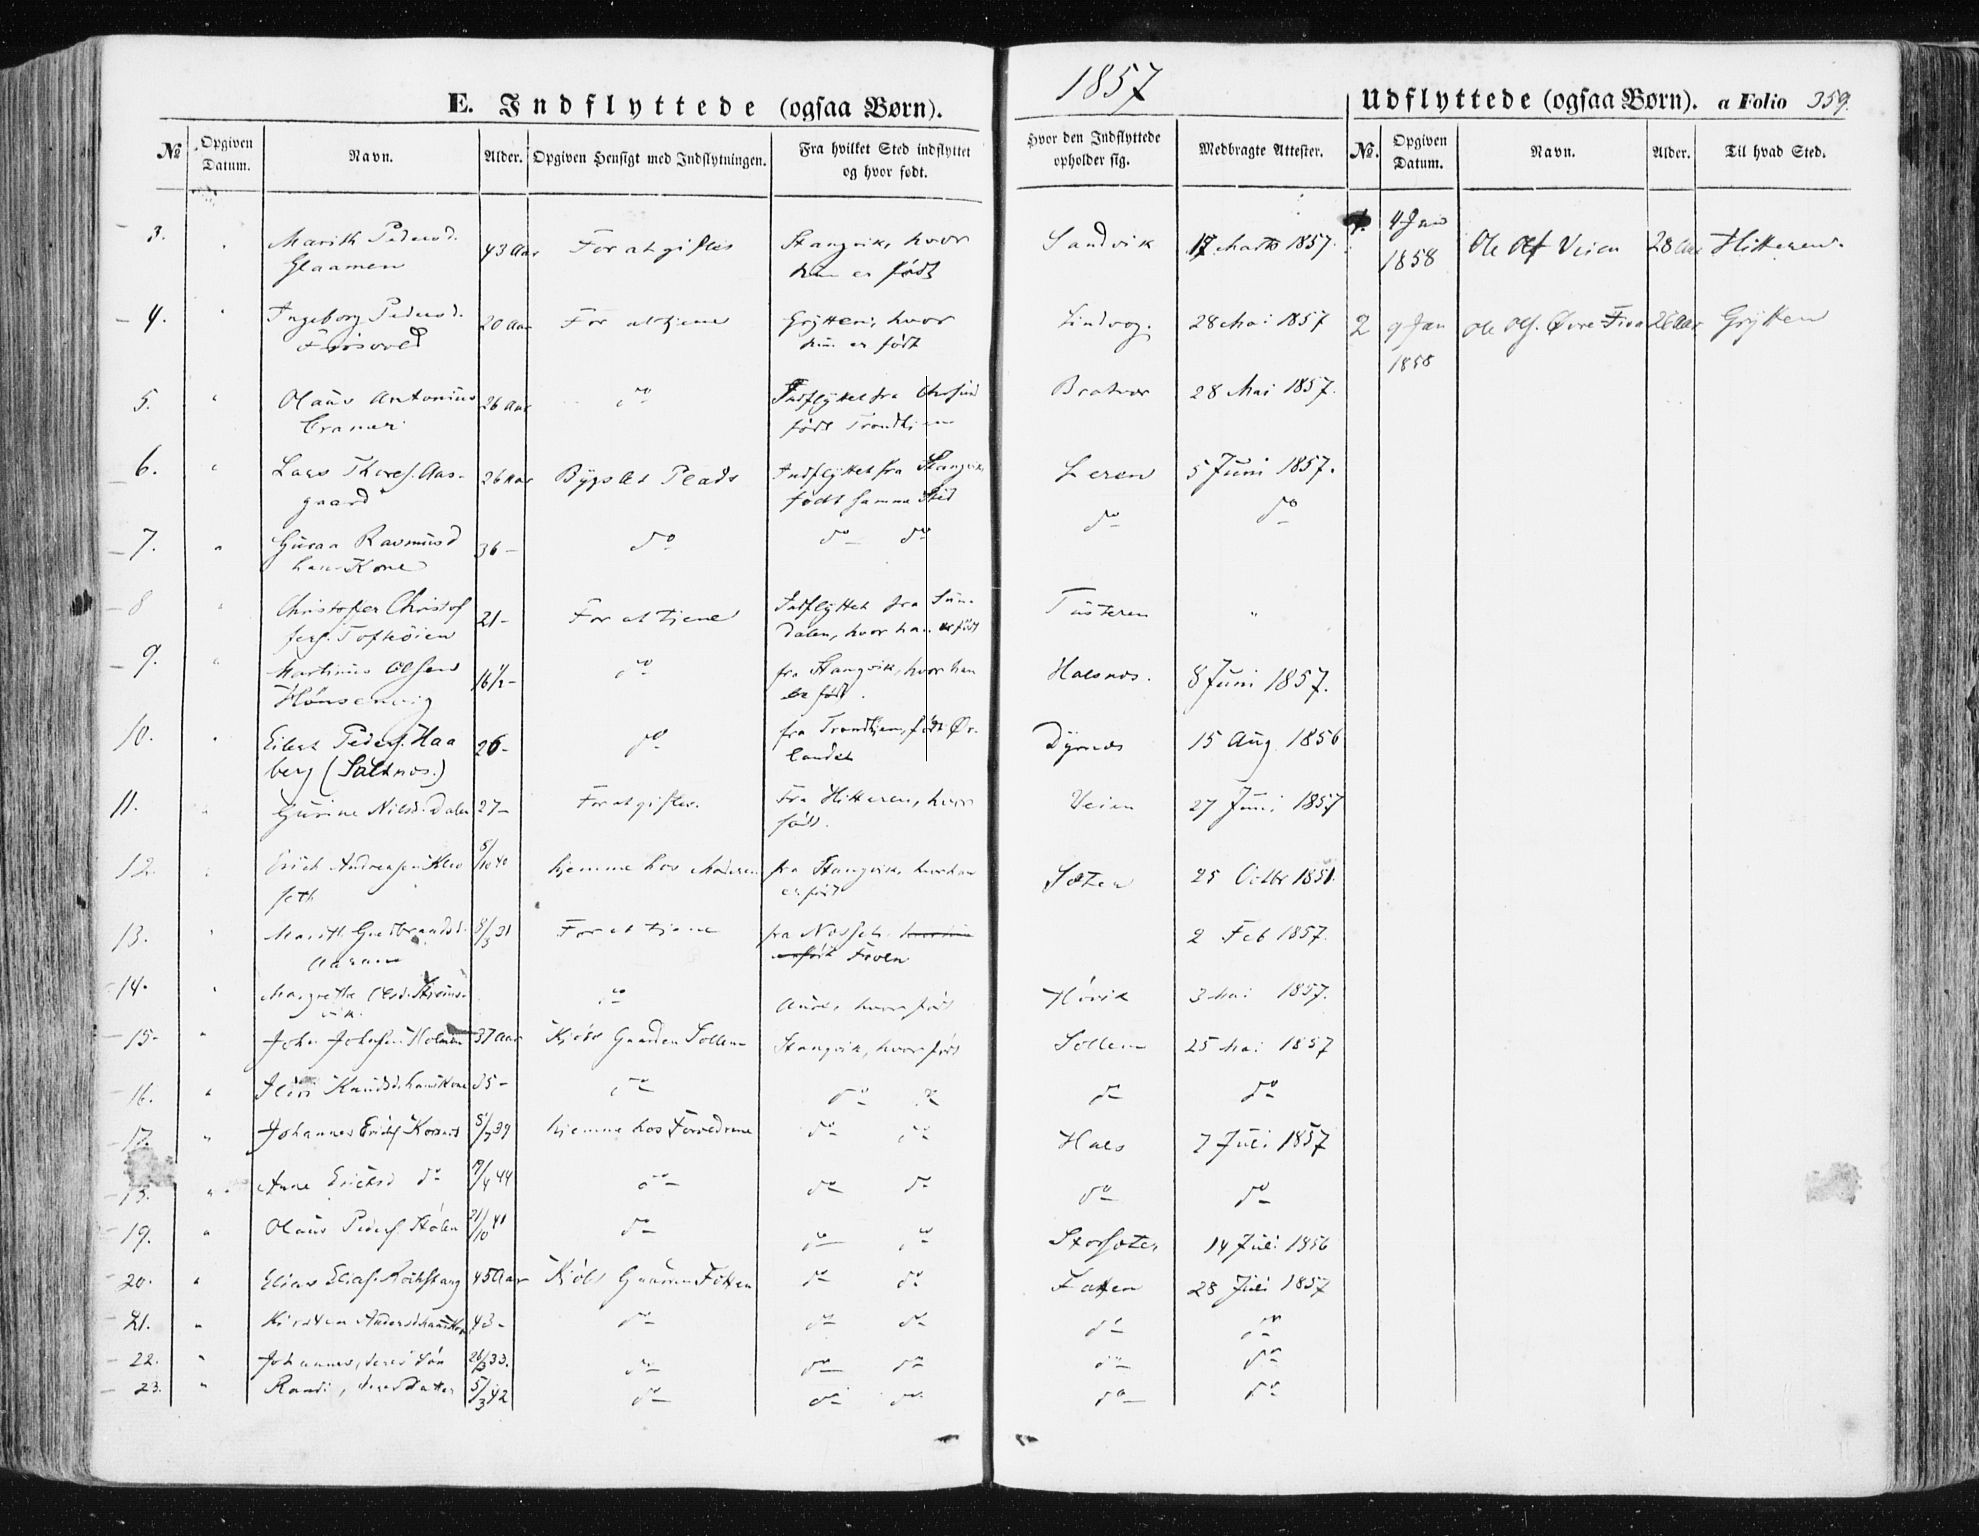 1857
E. Indflyttede (ogsaa Børn).
Udflyttede (ogsaa Børn). a Folio 359.
№ Opgiven Datum. Navn. Alder. Opgiven Hensigt med Indflytningen. Fra hvilket Sted indflyttet og hvor født. Hvor den Indflyttede opholder sig. Medbragte Attester. №. Opgiven Datum. Navn. Alder. Til hvad Sted.
3. " Marith Pedersd. 43 Aar For at giftes Stangvik, hvor Sandvik 17 Marts 1857.
Glaamen hun er født
4. " Ingeborg Pedersd. 20 Aar For at tjene Grytten, hvor Lindvog. 28 Mai 1857
hun er født
5. " Olaus Antonius 26 Aar do Indflyttet fra Chrsund Bratvær 28 Mai 1857.
Cramer født Trondhjem
6. " Lars Thoresf. Aas- 26 Aar Bygslet Plads Indflyttet fra Stangvik Leren 5 Juni 1857.
gaard født samme Sted
7. " Guraa Rasmusd 36 - do do do do do
hans Kone
8 " Christoffer Christof 21 - For at tjene Indflyttet fra Sun- Tusteren "
fersf. Tofthøien dalen, hvor han er født
9. " Martinus Olsen 16½ - do fra Stangvik, hvor han Halsnæs. 8 Juni 1857.
er født.
10. " Eilert Pedersf. Haa 26 - do fra Trondhjem, født Ør- Dyrnæs 15 Aug. 1856
berg (Saltnæs.) landet
11. " Gurine Nilsd. Dalen 27 - For at giftes. Fra Hitteren, hvor Veien 27 Juni 1857
født.
12. " Erich Andreasen 5/10 40 hjemme hos Moderen fra Stangvik, hvor han Sæter 25 Octbr 1851.
seth er født
13. " Marith Gudbrandsd. 8/3 31 For at tjene fra Næsset. 2 Feb 1857.
14. " Margrethe Olsd. do Aure, hvor født Hørvik 3 Mai 1857.
15. " John Johnsen Holmen 37 Aar Kjøbt Gaarden Sollem Stangvik, hvor født Sollem 25 Mai 1857
16. " Knudsd. hans Kone 35 - do do do do do
17. " Johannes Erichsf. 5/7 39 hjemme hos Forældrene do do Hals 7 Juli 1857
18. " Anne Erichsd do 19/4 44 do do do do do
19. " Olaus Pedersf. Stølen 21/10 41 do do do Storsæter 14 Juli 1856
20. " Elias Eliasf. 45 Aar Kjøbt Gaarden do do 28 Juli 1857
21. " Kirsten Andersd. hans Kone 43 - do do do do do
22. " Johannes, deres Søn 33. do do do do do
23. " Randi, deres Datter 5/3 42 do do do do do
1. 4 Jan 1858 Ole Olsf Veien 28 Aar Hitteren.
2 9 Jan 1858 Ole Olsf. Øvre Fiva 26 Aar Grytten